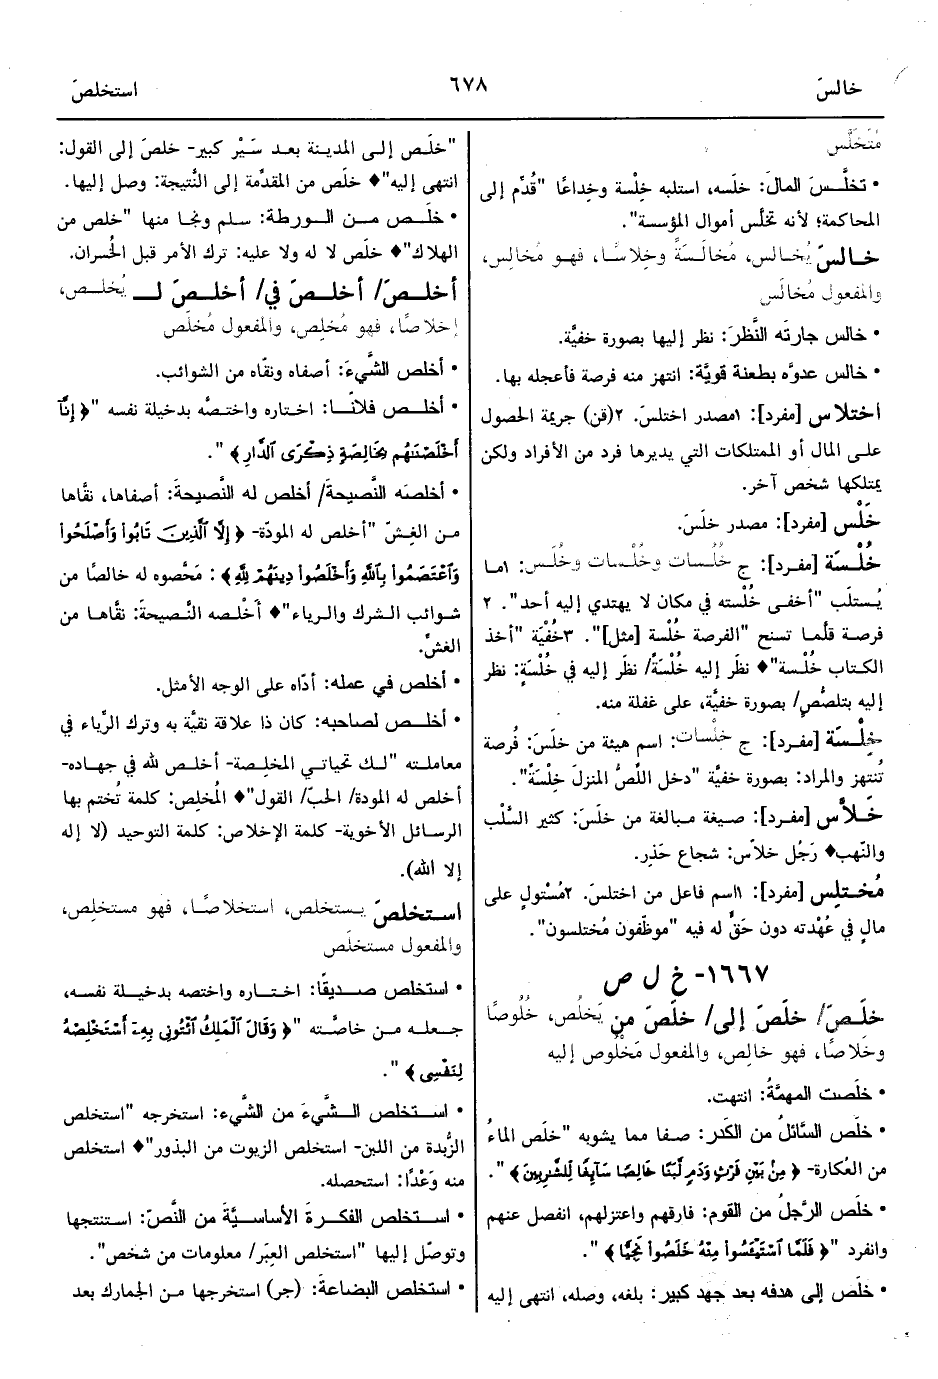 خالسَ
٦٧٨
استخلصَ
مُتخلَّس
• تخلَّسَ المالَ: خلَسه، استلبه خِلْسة وخِداعًا "قُدِّم إلى
المحاكمة؛ لأنه تخلَّس أموال المؤسسة".
خالسَ يُخالس، مُخالَسةً وخِلاسًا، فهو مُخالِس،
والمفعول مُخالَس
• خالس جارتَه النَّظرَ: نظر إليها بصورة خفيَّة.
• خالس عدوَّه بطعنة قويَّة: انتهز منه فرصة فأعجله بها.
اختلاس [مفرد]: ١مصدر اختلسَ. ٢(قن) جريمة الحصول
على المال أو الممتلكات التي يديرها فرد من الأفراد ولكن
يمتلكها شخص آخر.
خَلْس [مفرد]: مصدر خلَسَ.
خُلْسَة [مفرد]: ج خُلُسات وخُلْسات وخُلَس: ١ما
يُستلَب "أخفى خُلْسته في مكان لا يهتدي إليه أحد". ٢
فرصة قلَّما تسنح "الفرصة خُلْسة [مثل]". ٣خُفْيَة "أخذ
الكتاب خُلْسة"♦ نظَر إليه خُلْسَةً/ نظَر إليه في خُلْسَةٍ: نظر
إليه بتلصُّص/ بصورة خفيَّة، على غفلة منه.
خِلْسَة [مفرد]: ج خلْسات: اسم هيئة من خلَسَ: فُرصة
تُنتهز والمراد: بصورة خفيَّة "دخل اللّصُّ المنزلَ خِلْسَةً".
خَلاَّس [مفرد]: صيغة مبالغة من خلَسَ: كثير السَّلْب
والنَّهب♦ رَجُل خلاّس: شجاع حَذِر.
مُختلِس [مفرد]: ١اسم فاعل من اختلسَ. ٢مُسْتولٍ على
مالٍ في عُهْدته دون حَقٍّ له فيه "موظّفون مُختلسون".
١٦٦٧- خ ل ص
خلَصَ/ خلَصَ إلى/ خلَصَ من يَخلُص، خُلُوصًا
وخَلاصًا، فهو خالِص، والمفعول مَخْلُوص إليه
• خلَصت المهمَّةُ: انتهت.
• خلَص السَّائلُ من الكَدَر: صفا مما يشوبه "خلَص الماءُ
من العُكارة- ﴿ مِنْ بَيْنِ فَرْثٍ وَدَمٍ لَبَنًا خَالِصًا سَآئِغًا لِلشَّٰرِبِينَ ﴾ ".
• خلَص الرَّجلُ من القوم: فارقهم واعتزلهم، انفصل عنهم
وانفرد "﴿ فَلَمَّا ٱسْتَيْـَٔسُوا۟ مِنْهُ خَلَصُوا۟ نَجِيًّا ﴾ ".
• خلَص إلى هدفه بعد جهد كبير: بلغه، وصله، انتهى إليه
"خلَص إلى المدينة بعد سَيْر كبير- خلصَ إلى القول:
انتهى إليه"♦ خلَص من المقدَّمة إلى النَّتيجة: وصل إليها.
• خلَص من الورطة: سلم ونجا منها "خلص من
الهلاك"♦ خلَص لا له ولا عليه: ترك الأمر قبل الخُسران.
أخلصَ/ أخلصَ في/ أخلصَ لـ يُخلص،
إخلاصًا، فهو مُخلِص، والمفعول مُخلَص
• أخلص الشَّيءَ: أصفاه ونقَّاه من الشوائب.
• أخلص فلانًا: اختاره واختصَّه بدخيلة نفسه "﴿ إِنَّآ
أَخْلَصْنَٰهُم بِخَالِصَةٍ ذِكْرَى ٱلدَّارِ ﴾ ".
• أخلصَه النَّصيحةَ/ أخلص له النَّصيحةَ: أصفاها، نقَّاها
من الغِشّ "أخلص له المودّة- ﴿ إِلَّا ٱلَّذِينَ تَابُوا۟ وَأَصْلَحُوا۟
وَٱعْتَصَمُوا۟ بِٱللَّهِ وَأَخْلَصُوا۟ دِينَهُمْ لِلَّهِ ﴾ : مَحَّصوه له خالصًا من
شوائب الشرك والرياء"♦ أخْلصه النَّصيحةَ: نقَّاها من
الغشِّ.
• أخلص في عمله: أدّاه على الوجه الأمثل.
• أخلص لصاحبه: كان ذا علاقة نقيَّة به وترك الرِّياء في
معاملته "لك تحياتي المخلِصة- أخلص لله في جهاده-
أخلص له المودة/ الحبّ/ القول"♦ المُخلِص: كلمة تُختم بها
الرسائل الأخوية- كلمة الإخلاص: كلمة التوحيد (لا إله
إلا الله).
استخلصَ يستخلص، استخلاصًا، فهو مستخلِص،
والمفعول مستخلَص
• استخلص صديقًا: اختاره واختصه بدخيلة نفسه،
جعله من خاصَّته "﴿ وَقَالَ ٱلْمَلِكُ ٱئْتُونِى بِهِۦٓ أَسْتَخْلِصْهُ
لِنَفْسِى ﴾ ".
• استخلص الشَّيءَ من الشَّيء: استخرجه "استخلص
الزُّبدة من اللبن- استخلص الزيوت من البذور"♦ استخلص
منه وَعْدًا: استحصله.
• استخلص الفكرةَ الأساسيَّةَ من النَّصّ: استنتجها
وتوصّل إليها "استخلص العِبَر/ معلومات من شخص".
• استخلص البضاعةَ: (جر) استخرجها من الجمارك بعد